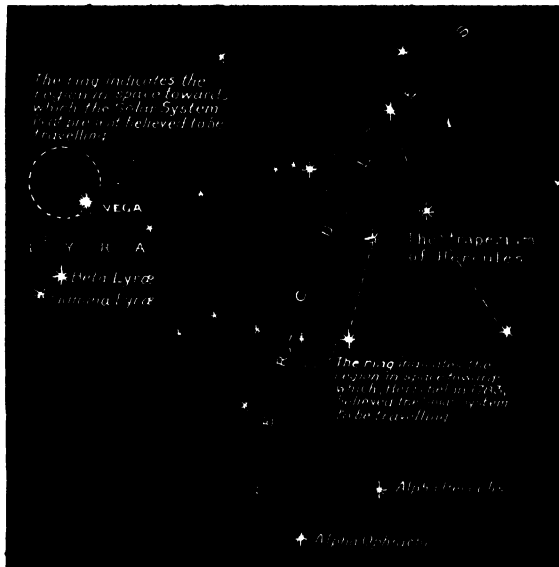 The ring indicates the
region in space towards
which the Solar System
is at present believed to be
travelling
VEGA
LYRA
Beta Lyræ
Gamma Lyræ
The Trapezium
of Hercules
HERCULES
The ring indicates the
region in space towards
which, Herschel in 1783,
believed the Solar System
to be travelling
Alpha Herculis
Alpha Ophiuchi